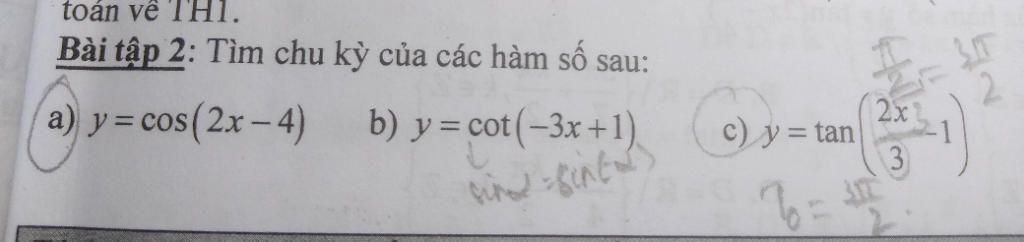 toán về TH1.
Bài tập 2: Tìm chu kỳ của các hàm số sau:
π/2 = 3π/2
a) y = cos(2x – 4) b) y = cot(–3x + 1) c) y = tan(2x/3 – 1)
sinα = sin(-α)
T₀ = 3π/2.